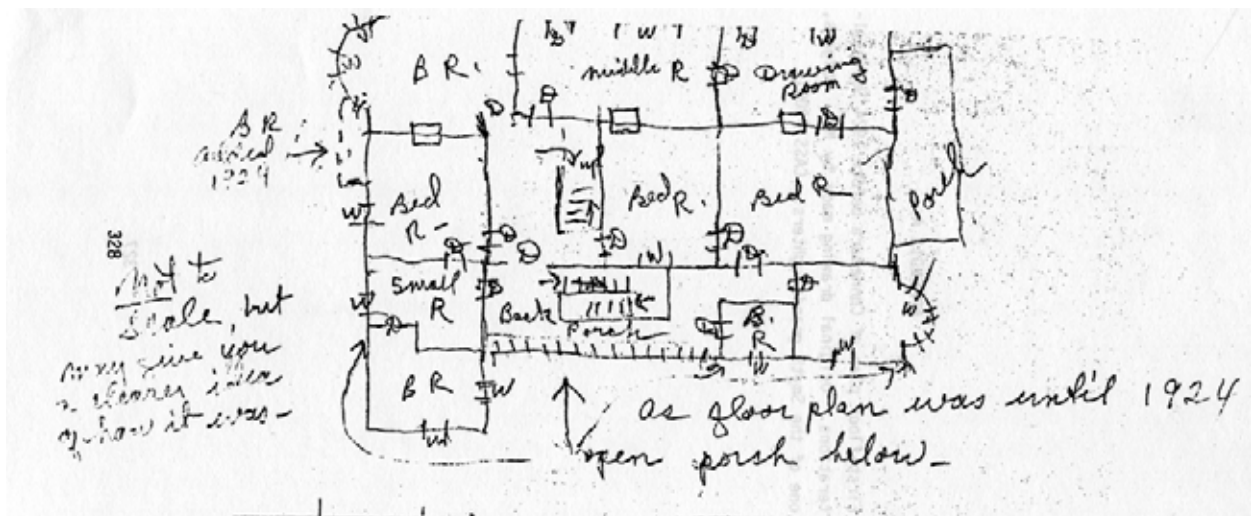 D W D W
B R.
middle R
D
Drawing
Room
D
D
D
D
B R.
added
1924
up
W
Bed
R-
Bed R.
Bed R-
Porsh
D
D
D
D
D
W
D
328
Not to
Scale, but
may give you
a clearer idea
of how it was-
W
Small
R
D
Back
Porsh
D
B.
R
D
W
D
W
W
B R
W
W
as floor plan was until 1924
open porsh below-